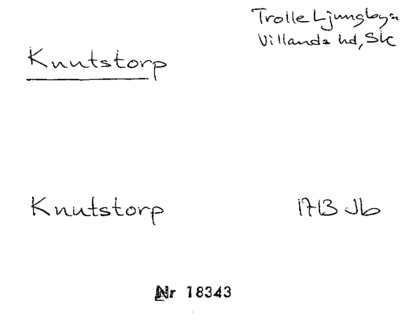 Trolle Ljungby sn
Villands hd, Sk
Knutstorp
Knutstorp 1713 Jb
Nr 18343